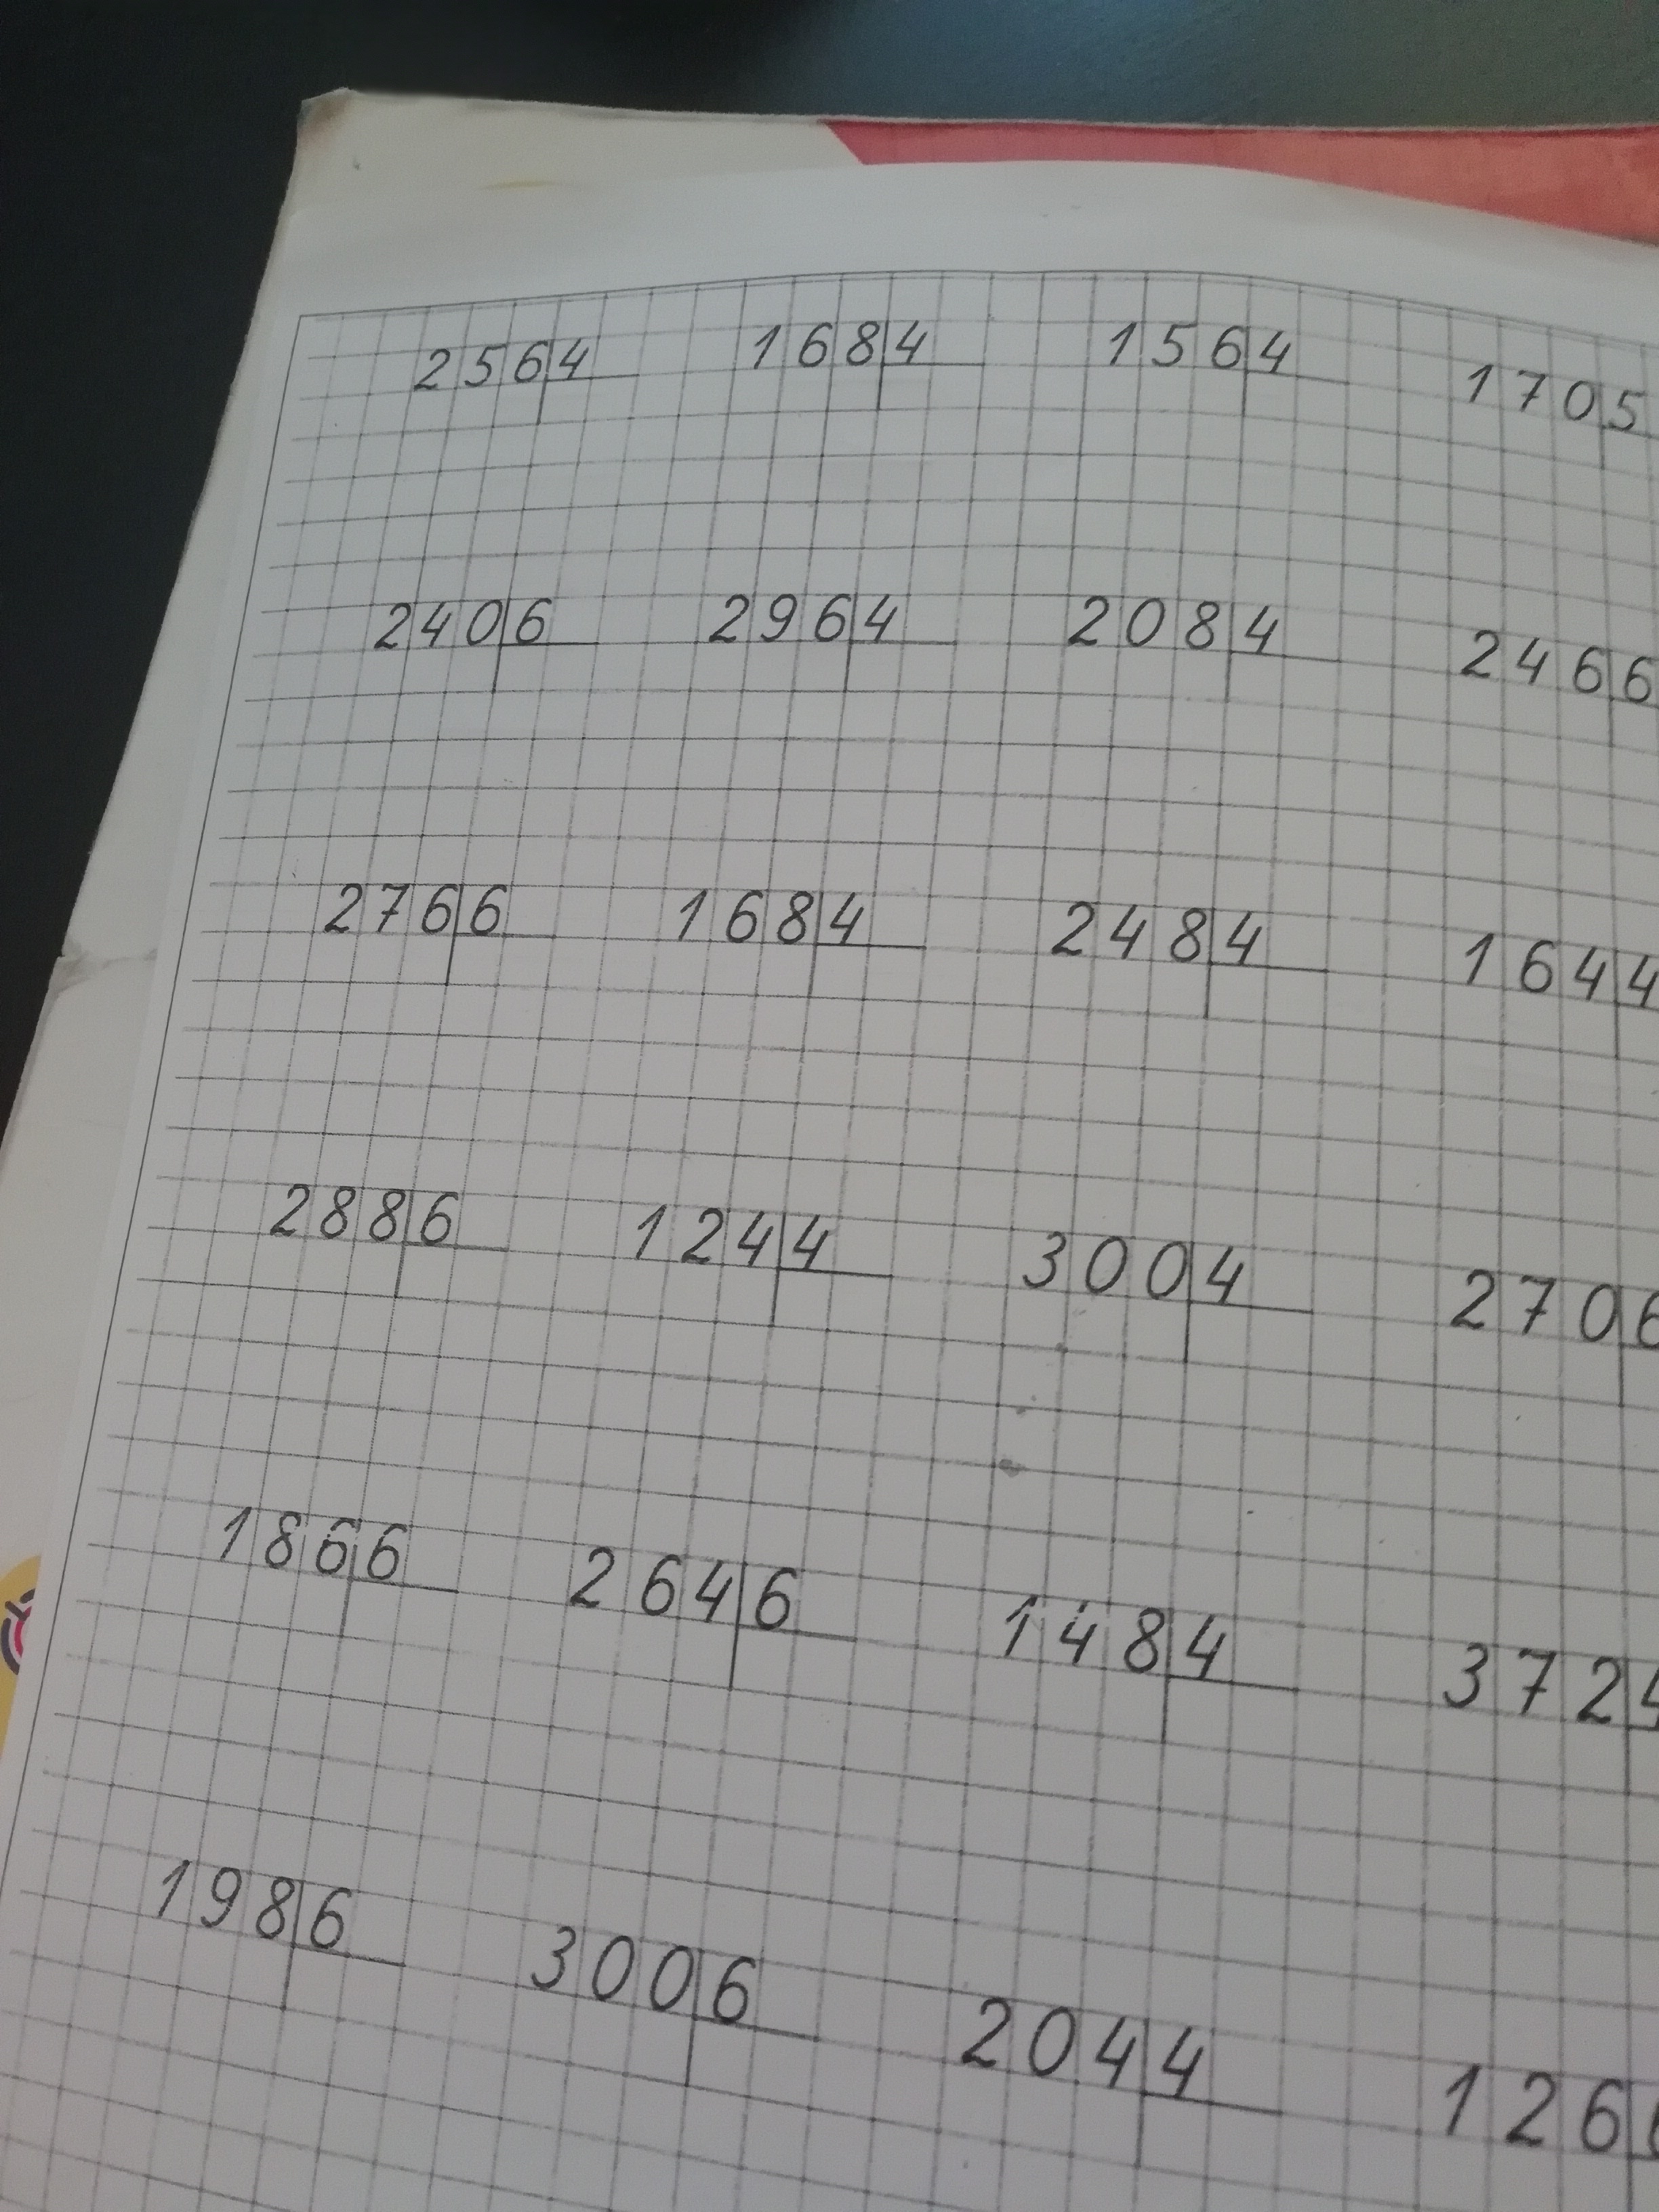 256|4 168|4 156|4 170|5
240|6 296|4 208|4 246|6
276|6 168|4 248|4 164|4
288|6 124|4 300|4 270|6
186|6 264|6 148|4 372|4
198|6 300|6 204|4 126|